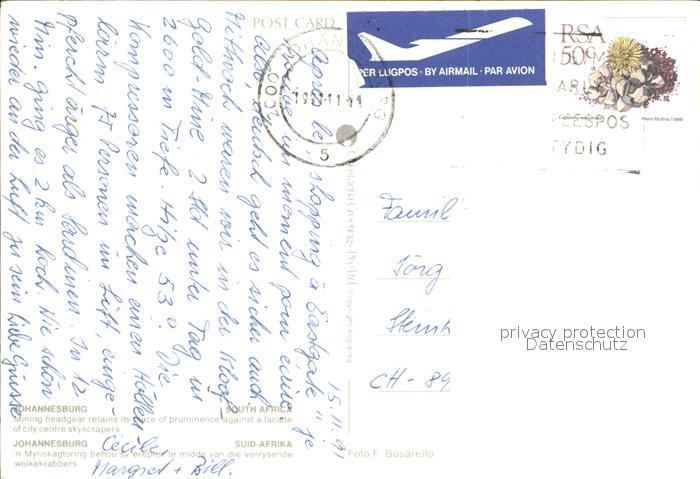 POST CARD
PER LUGPOS · BY AIRMAIL · PAR AVION
RSA
50c
Hein Botha 1988
2000
5
POS
TYDIG
15.11.91
après le shopping à Eastgate "je
un moment pour écrire
aber deutsch geht es sicher auch.
Mittwoch waren wir in der
Gold-Mine. 2 Std unter Tag in
2600 m Tiefe. Hitze 53°. Die
Kompressoren machen einen Höllen-
lärm. 77 Personen im Lift, einge-
pfercht ärger als Sardinen. In 12
Min. ging es 2 km hoch. Wie schön
wieder an der Luft zu sein. Liebe Grüsse
Cécile,
Margret + Bill.
Famil
Jörg
CH-89
privacy protection
Datenschutz
JOHANNESBURG SOUTH AFRICA
Mining headgear retains its place of prominence against a facade
of city centre skyscrapers.
JOHANNESBURG SUID-AFRIKA
'n Mynskagtoring behou sy ereplek te midde van die verrysende
wolkekrabbers.
Foto F. Busarello